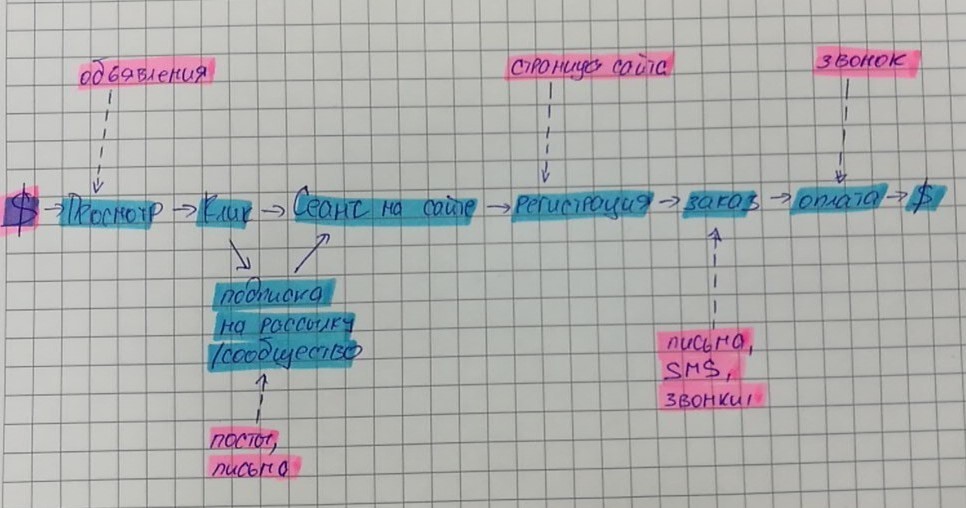 объявления
страницы сайта
звонок
$ → Просмотр → Клик → Сеанс на сайте → регистрация → заказ → оплата → $
подписка
на рассылку
/сообщество
письма,
SMS,
звонки,
посты,
письма